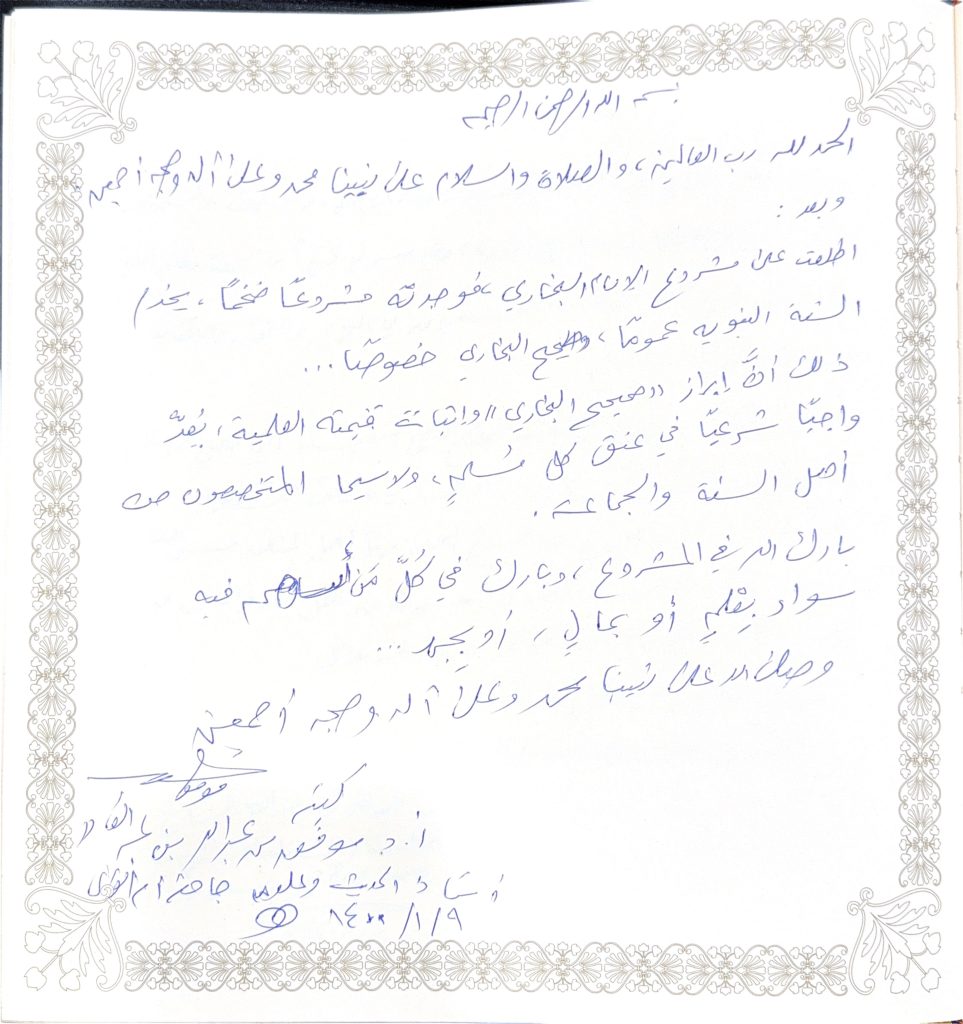 بسم الله الرحمن الرحيم
الحمد لله رب العالمين، والصلاة والسلام على نبينا محمد وعلى آله وصحبه أجمعين.
وبعد:
اطلعت على مشروع الإمام البخاري، فوجدته مشروعًا ضخمًا، يخدم
السنة النبوية عمومًا، وصحيح البخاري خصوصًا...
ذلك أنَّ إبراز "صحيح البخاري" وإثبات قيمته العلمية، يُعدّ
واجبًا شرعيًا في عنق كل مُسلمٍ، ولاسيما المتخصصون من
أهل السنة والجماعة.
بارك الله في المشروع، وبارك في كُلّ مَن أسهم فيه
سواء بِقلمٍ أو بمالٍ، أو بجهد...
وصلى الله على نبينا محمد وعلى آله وصحبه أجمعين
كتبه
أ.د موفق بن عبدالله بن عبدالقادر
أستاذ الحديث وعلومه جامعة أم القرى
١٤٠٠/١/٩